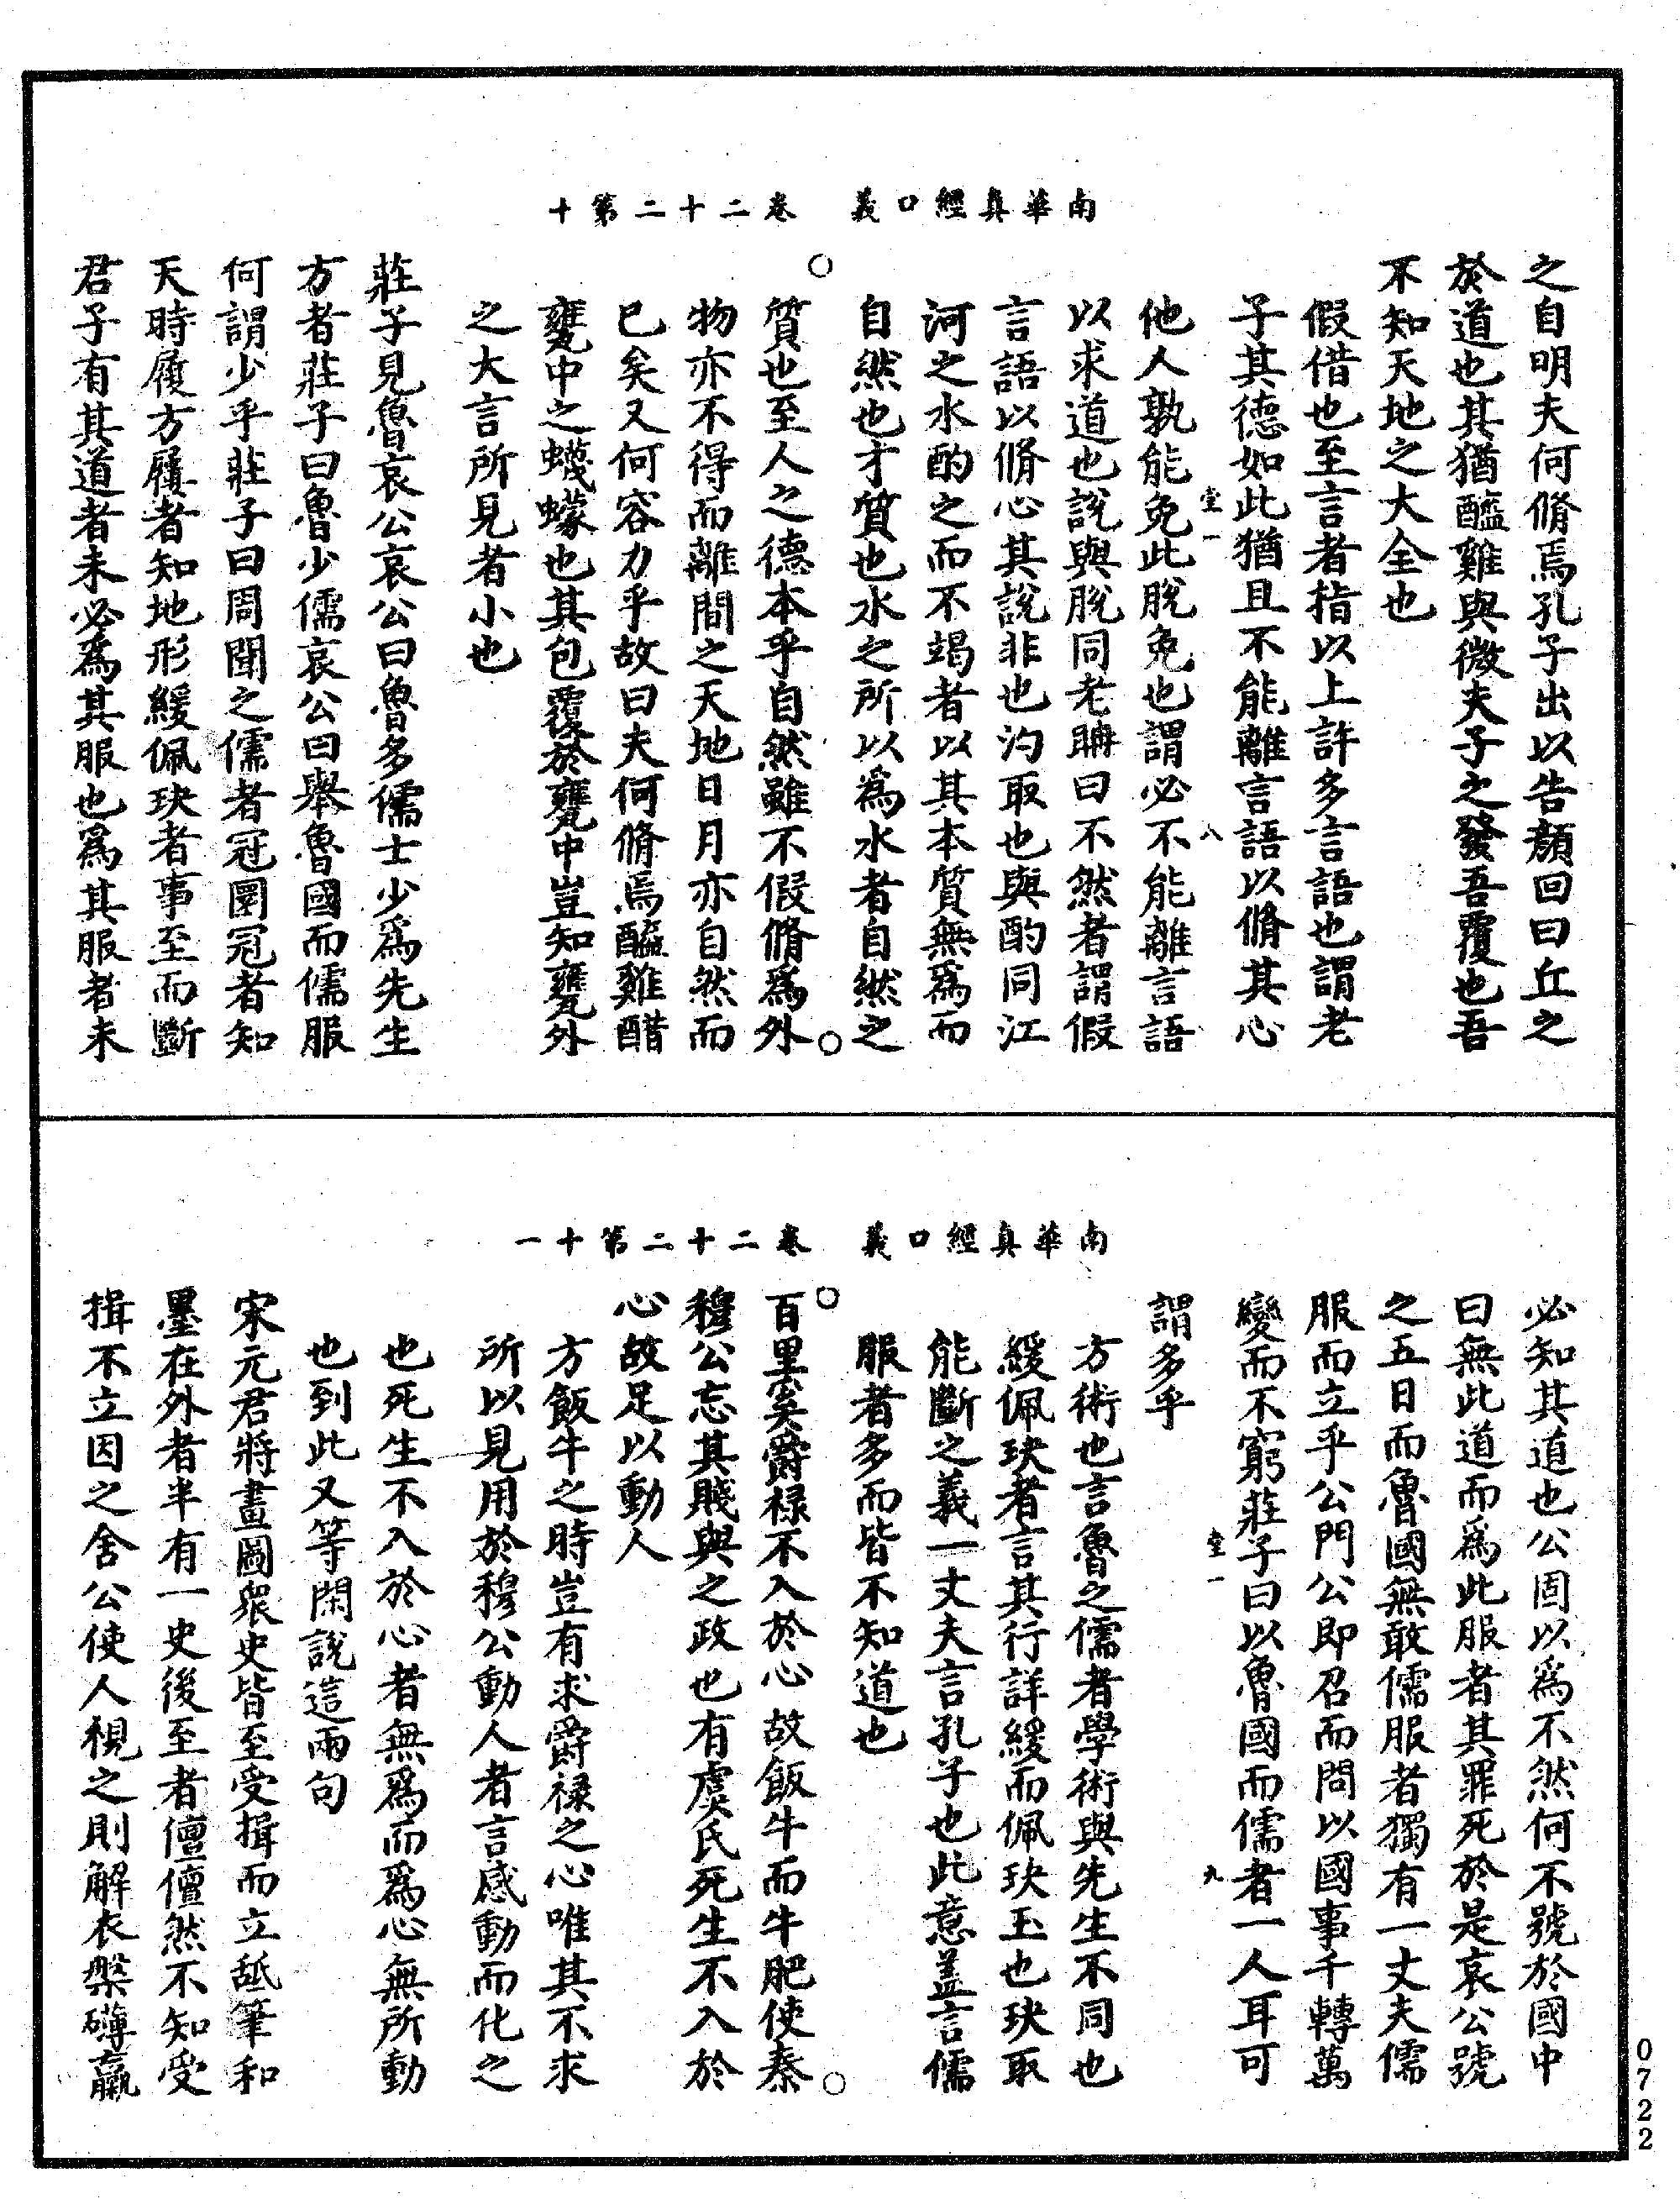 南華真經口義　卷二十二第十
之自明夫何脩焉孔子出以告顏回曰丘之
於道也其猶醯雞與微夫子之發吾覆也吾
不知天地之大全也
假借也至言者指以上許多言語也謂老
子其德如此猶且不能離言語以脩其心
堂一　八
他人孰能免此脫免也謂必不能離言語
以求道也說與脫同老聃曰不然者謂假
言語以脩心其說非也汋取也與酌同江
河之水酌之而不竭者以其本質無爲而
自然也才質也水之所以爲水者自然之
質也至人之德本乎自然雖不假脩爲外
物亦不得而離間之天地日月亦自然而
已矣又何容力乎故曰夫何脩焉醯雞醋
甕中之蠛蠓也其包覆於甕中豈知甕外
之大言所見者小也
莊子見魯哀公哀公曰魯多儒士少爲先生
方者莊子曰魯少儒哀公曰舉魯國而儒服
何謂少乎莊子曰周聞之儒者冠圜冠者知
天時履方屨者知地形緩佩玦者事至而斷
君子有其道者未必爲其服也爲其服者未
南華真經口義　卷二十二第十一
必知其道也公固以爲不然何不號於國中
曰無此道而爲此服者其罪死於是哀公號
之五日而魯國無敢儒服者獨有一丈夫儒
服而立乎公門公即召而問以國事千轉萬
變而不窮莊子曰以魯國而儒者一人耳可
堂一　九
謂多乎
方術也言魯之儒者學術與先生不同也
緩佩玦者言其行詳緩而佩玦玉也玦取
能斷之義一丈夫言孔子也此意蓋言儒
服者多而皆不知道也
百里奚爵祿不入於心故飯牛而牛肥使秦
穆公忘其賤與之政也有虞氏死生不入於
心故足以動人
方飯牛之時豈有求爵祿之心唯其不求
所以見用於穆公動人者言感動而化之
也死生不入於心者無爲而爲心無所動
也到此又等閑說這兩句
宋元君將畫圖衆史皆至受揖而立舐筆和
墨在外者半有一史後至者儃儃然不知受
揖不立因之舍公使人視之則解衣槃礴臝
0722